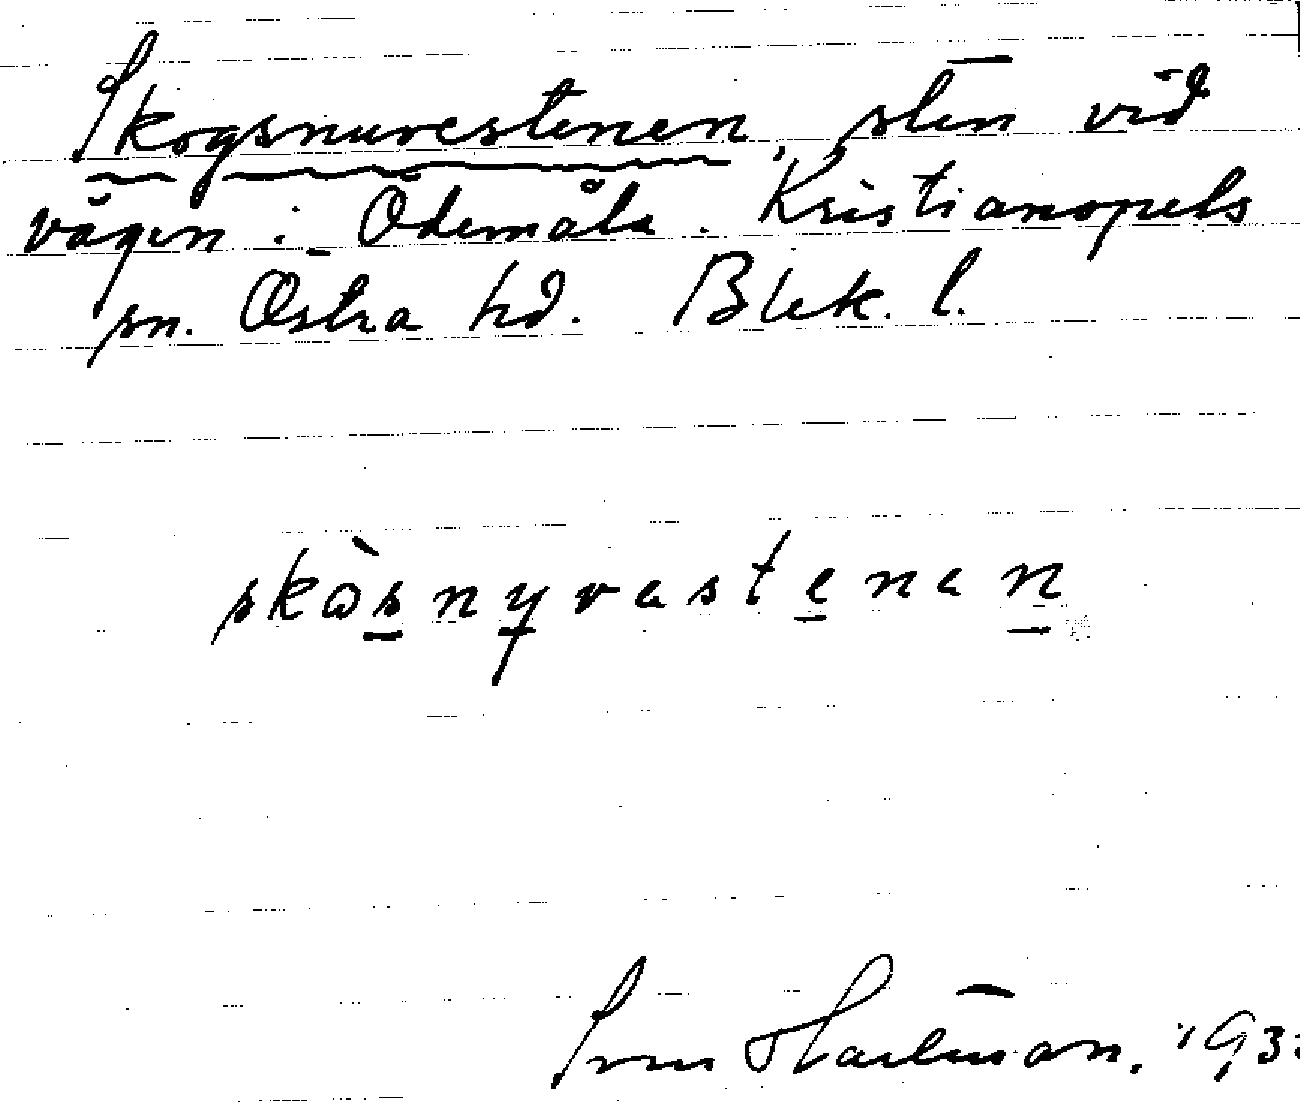 Skogsnuvestenen, sten vid
vägen i Ödemåla. Kristianopels
sn. Östra hd. Blek. l.
skòsnyvastenan
Sven